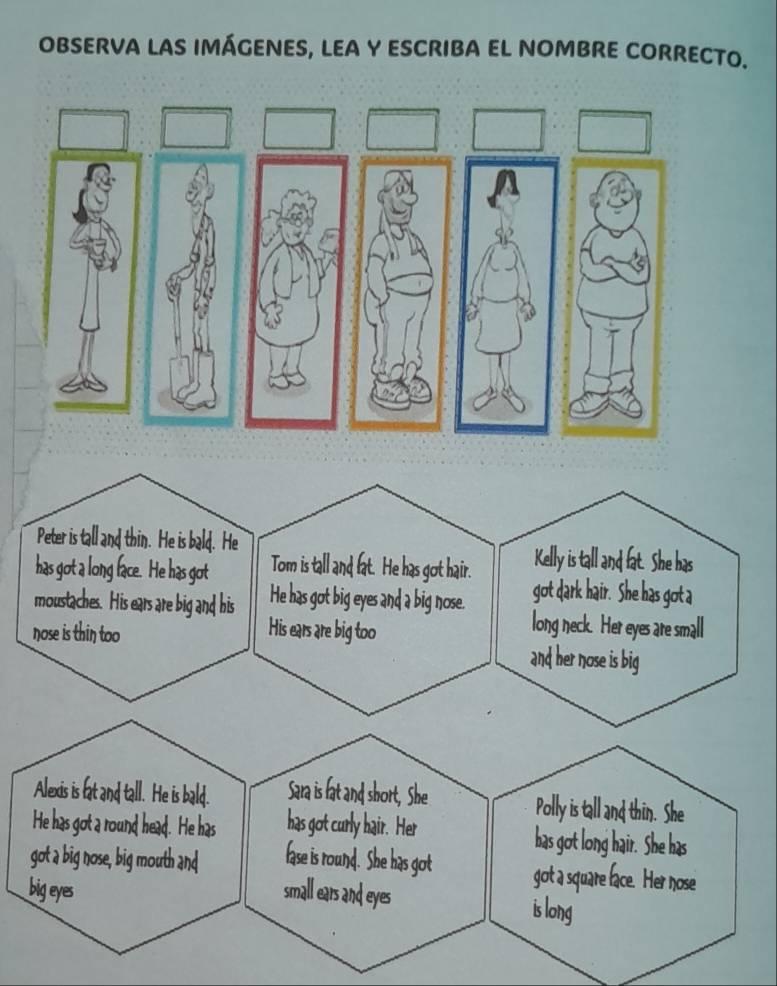 OBSERVA LAS IMÁGENES, LEA Y ESCRIBA EL NOMBRE CORRECTO.
Peter is tall and thin. He is bald. He
has got a long face. He has got
moustaches. His ears are big and his
nose is thin too
Tom is tall and fat. He has got hair.
He has got big eyes and a big nose.
His ears are big too
Kelly is tall and fat. She has
got dark hair. She has got a
long neck. Her eyes are small
and her nose is big
Alexis is fat and tall. He is bald.
He has got a round head. He has
got a big nose, big mouth and
big eyes
Sara is fat and short, She
has got curly hair. Her
fase is round. She has got
small ears and eyes
Polly is tall and thin. She
has got long hair. She has
got a square face. Her nose
is long